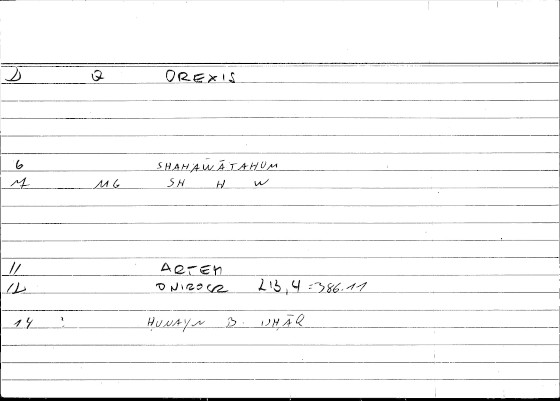 D Q OREXIS
6 SHAHAWĀTAHUM
M MG SH H W
11 ARTEM
12 ONIROCR 213,4 =386.11
14 : ḤUNAYN B. ISḤĀQ